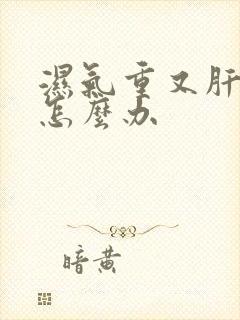 濕氣重又肝
怎麼办
暗黄